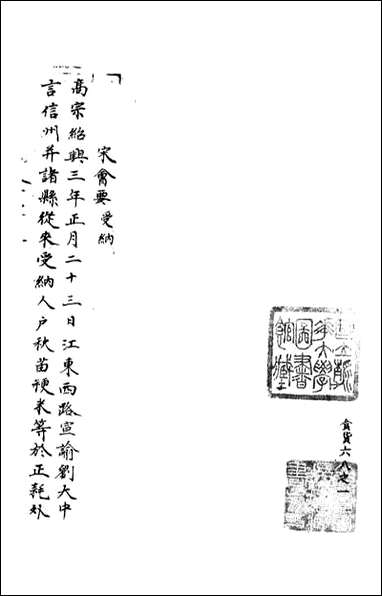 食貨六八之一
宋會要 受納
高宗紹興三年正月二十三日江東西路宣諭劉大中
言信州并諸縣從來受納人户秋苗稉米等於正耗外